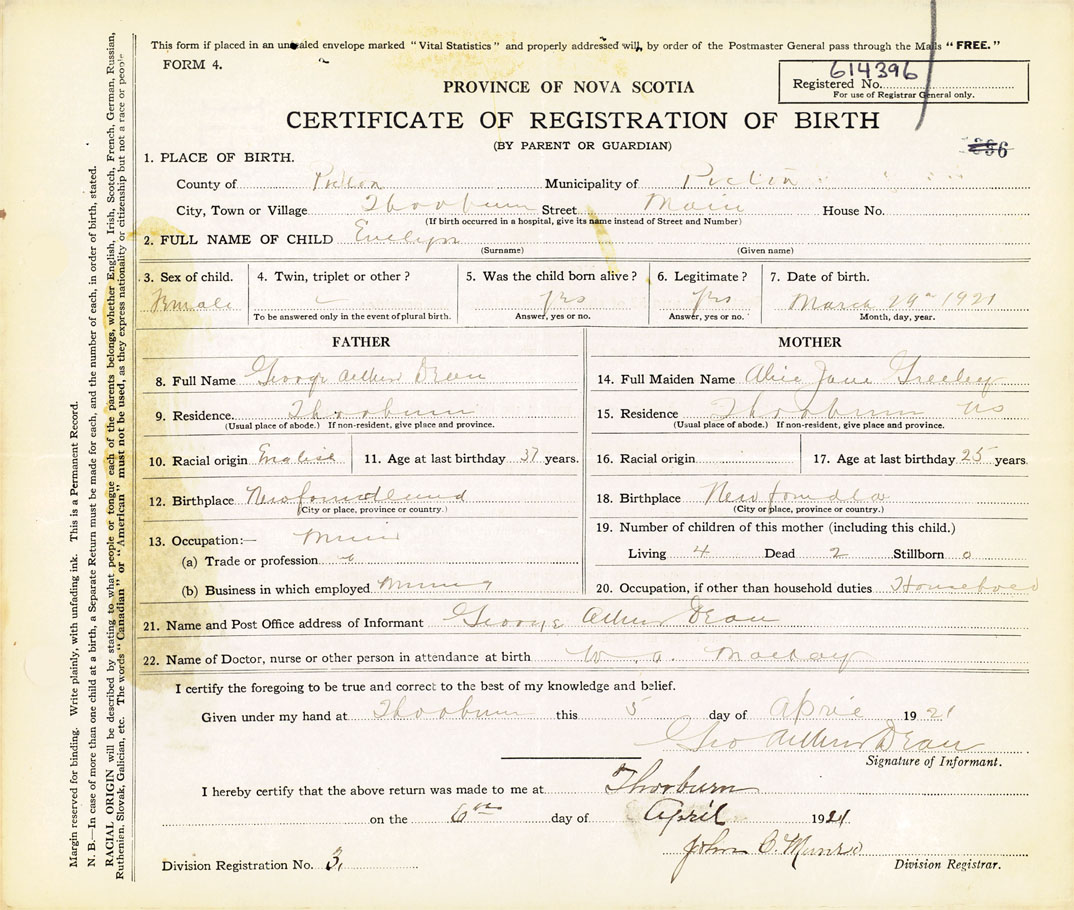 This form if placed in an unsealed envelope marked "Vital Statistics" and properly addressed will, by order of the Postmaster General pass through the Mails "FREE."
FORM 4.
614396
Registered No.
For use of Registrar General only.
PROVINCE OF NOVA SCOTIA
CERTIFICATE OF REGISTRATION OF BIRTH
(BY PARENT OR GUARDIAN)
1. PLACE OF BIRTH.
County of Pictou Municipality of Pictou
City, Town or Village Thorburn Street Main House No.
(If birth occurred in a hospital, give its name instead of Street and Number)
2. FULL NAME OF CHILD Evelyn
(Surname) (Given name)
3. Sex of child. 4. Twin, triplet or other? 5. Was the child born alive? 6. Legitimate? 7. Date of birth.
Female yes yes March 29th 1921
To be answered only in the event of plural birth. Answer, yes or no. Answer, yes or no. Month, day, year.
FATHER MOTHER
8. Full Name George Arthur Dean 14. Full Maiden Name Alice Jane Greeley
9. Residence. Thorburn 15. Residence Thorburn NS
(Usual place of abode.) If non-resident, give place and province. (Usual place of abode.) If non-resident, give place and province.
10. Racial origin English 11. Age at last birthday 37 years. 16. Racial origin 17. Age at last birthday 25 years.
12. Birthplace Newfoundland 18. Birthplace Newfoundla
(City or place, province or country.) (City or place, province or country.)
13. Occupation:— Miner 19. Number of children of this mother (including this child.)
(a) Trade or profession Living 4 Dead 2 Stillborn 0
(b) Business in which employed Mining 20. Occupation, if other than household duties
21. Name and Post Office address of Informant George Arthur Dean
22. Name of Doctor, nurse or other person in attendance at birth W. A. MacKay
I certify the foregoing to be true and correct to the best of my knowledge and belief.
Given under my hand at Thorburn this 5 day of April 1921
Geo Arthur Dean
Signature of Informant.
I hereby certify that the above return was made to me at Thorburn
on the 6th day of April 1921
John C. Munro
Division Registration No. 3, Division Registrar.
Margin reserved for binding. Write plainly, with unfading ink. This is a Permanent Record.
N. B.—In case of more than one child at a birth, a Separate Return must be made for each, and the number of each, in order of birth, stated.
RACIAL ORIGIN will be described by stating to what people or tongue each of the parents belongs, whether English, Irish, Scotch, French, German, Russian,
Ruthenian, Slovak, Galician, etc. The words "Canadian" or "American" must not be used, as they express nationality or citizenship but not a race or people